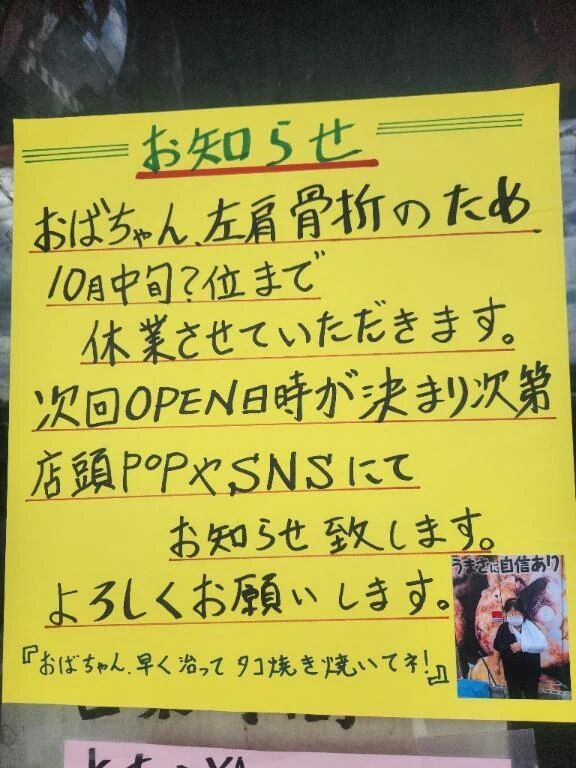 お知らせ
おばちゃん、左肩骨折のため
10月中旬?位まで
休業させていただきます。
次回OPEN日時が決まり次第
店頭POPやSNSにて
お知らせ致します。
よろしくお願いします。
うまさに自信あり
『おばちゃん、早く治って タコ焼き焼いてネ!』